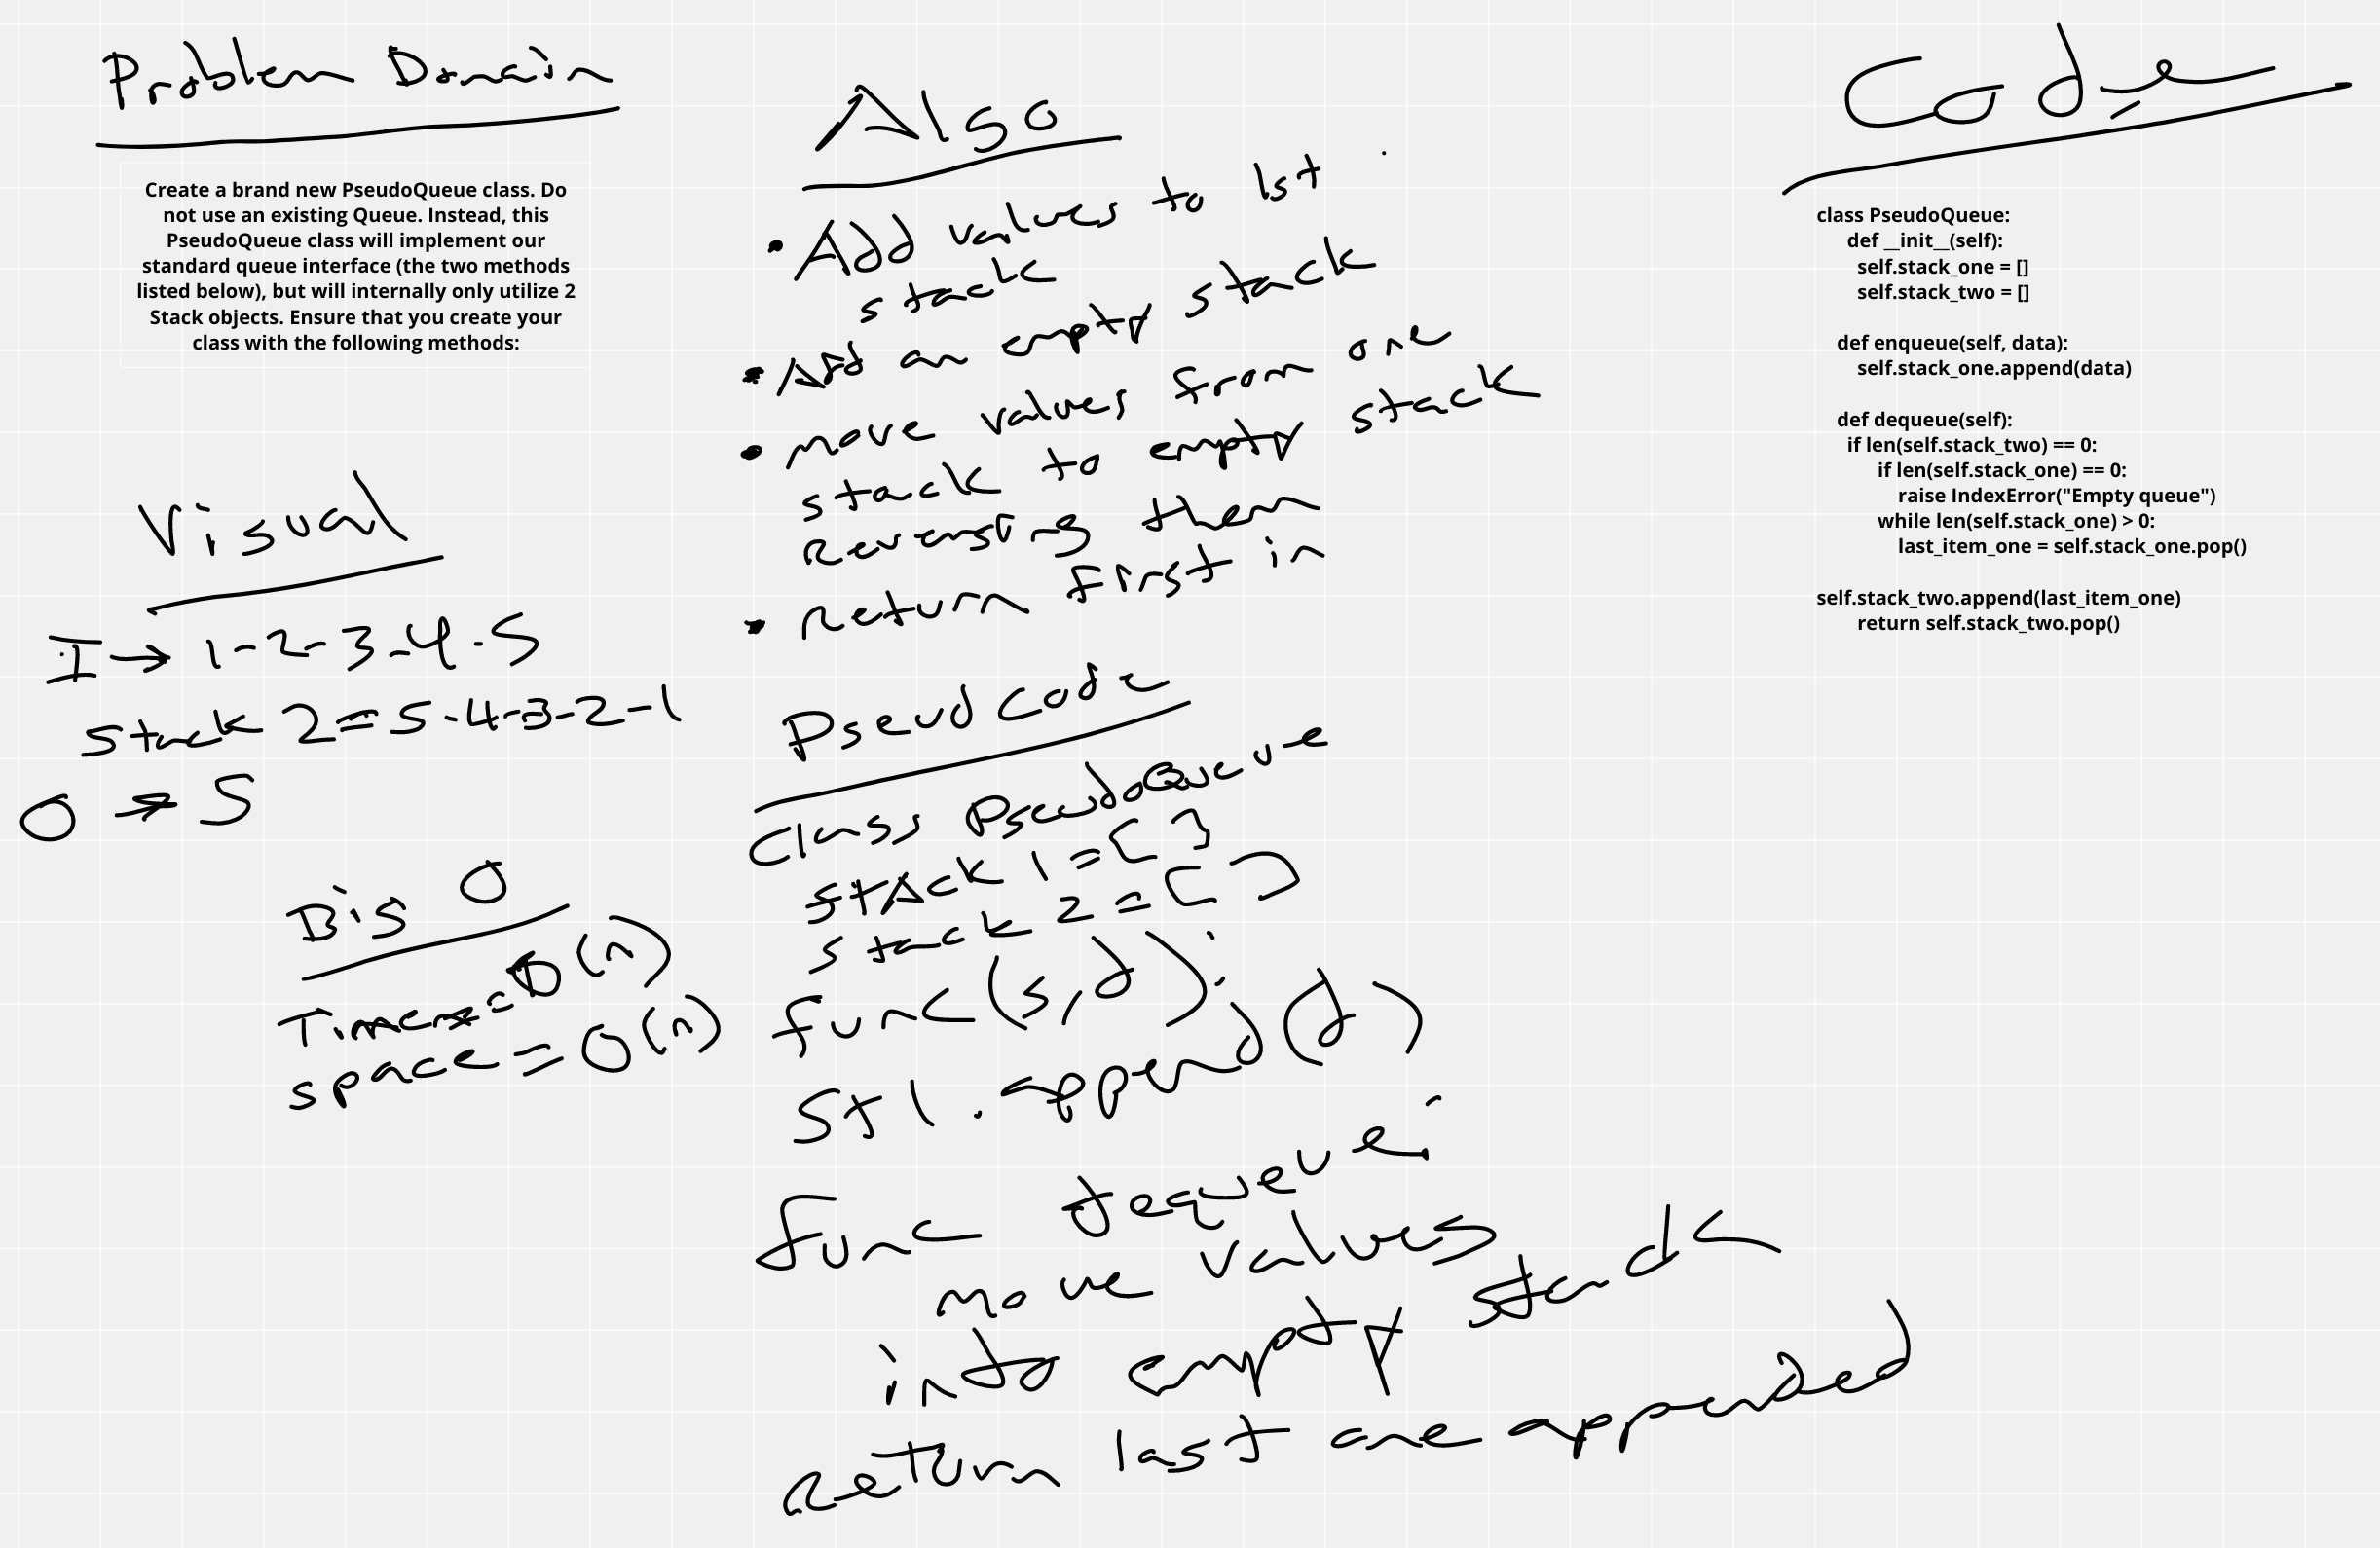 Problem Domain
Create a brand new PseudoQueue class. Do
not use an existing Queue. Instead, this
PseudoQueue class will implement our
standard queue interface (the two methods
listed below), but will internally only utilize 2
Stack objects. Ensure that you create your
class with the following methods:
Visual
I → 1-2-3-4-5
Stack 2 = 5-4-3-2-1
O → 5
Big O
Time = O(n)
space = O(n)
Algo
• Add values to 1st
stack
• Add an empty stack
• move values from one
stack to empty stack
Reversing them
• Return first in
Pseudcode
Class PseudoQueue
stack 1 = [ ]
stack 2 = [ ]
func(s,d):
St1.append(d)
func dequeue:
move values
into empty stack
Return last one appended
Code
class PseudoQueue:
def __init__(self):
self.stack_one = []
self.stack_two = []
def enqueue(self, data):
self.stack_one.append(data)
def dequeue(self):
if len(self.stack_two) == 0:
if len(self.stack_one) == 0:
raise IndexError("Empty queue")
while len(self.stack_one) > 0:
last_item_one = self.stack_one.pop()
self.stack_two.append(last_item_one)
return self.stack_two.pop()